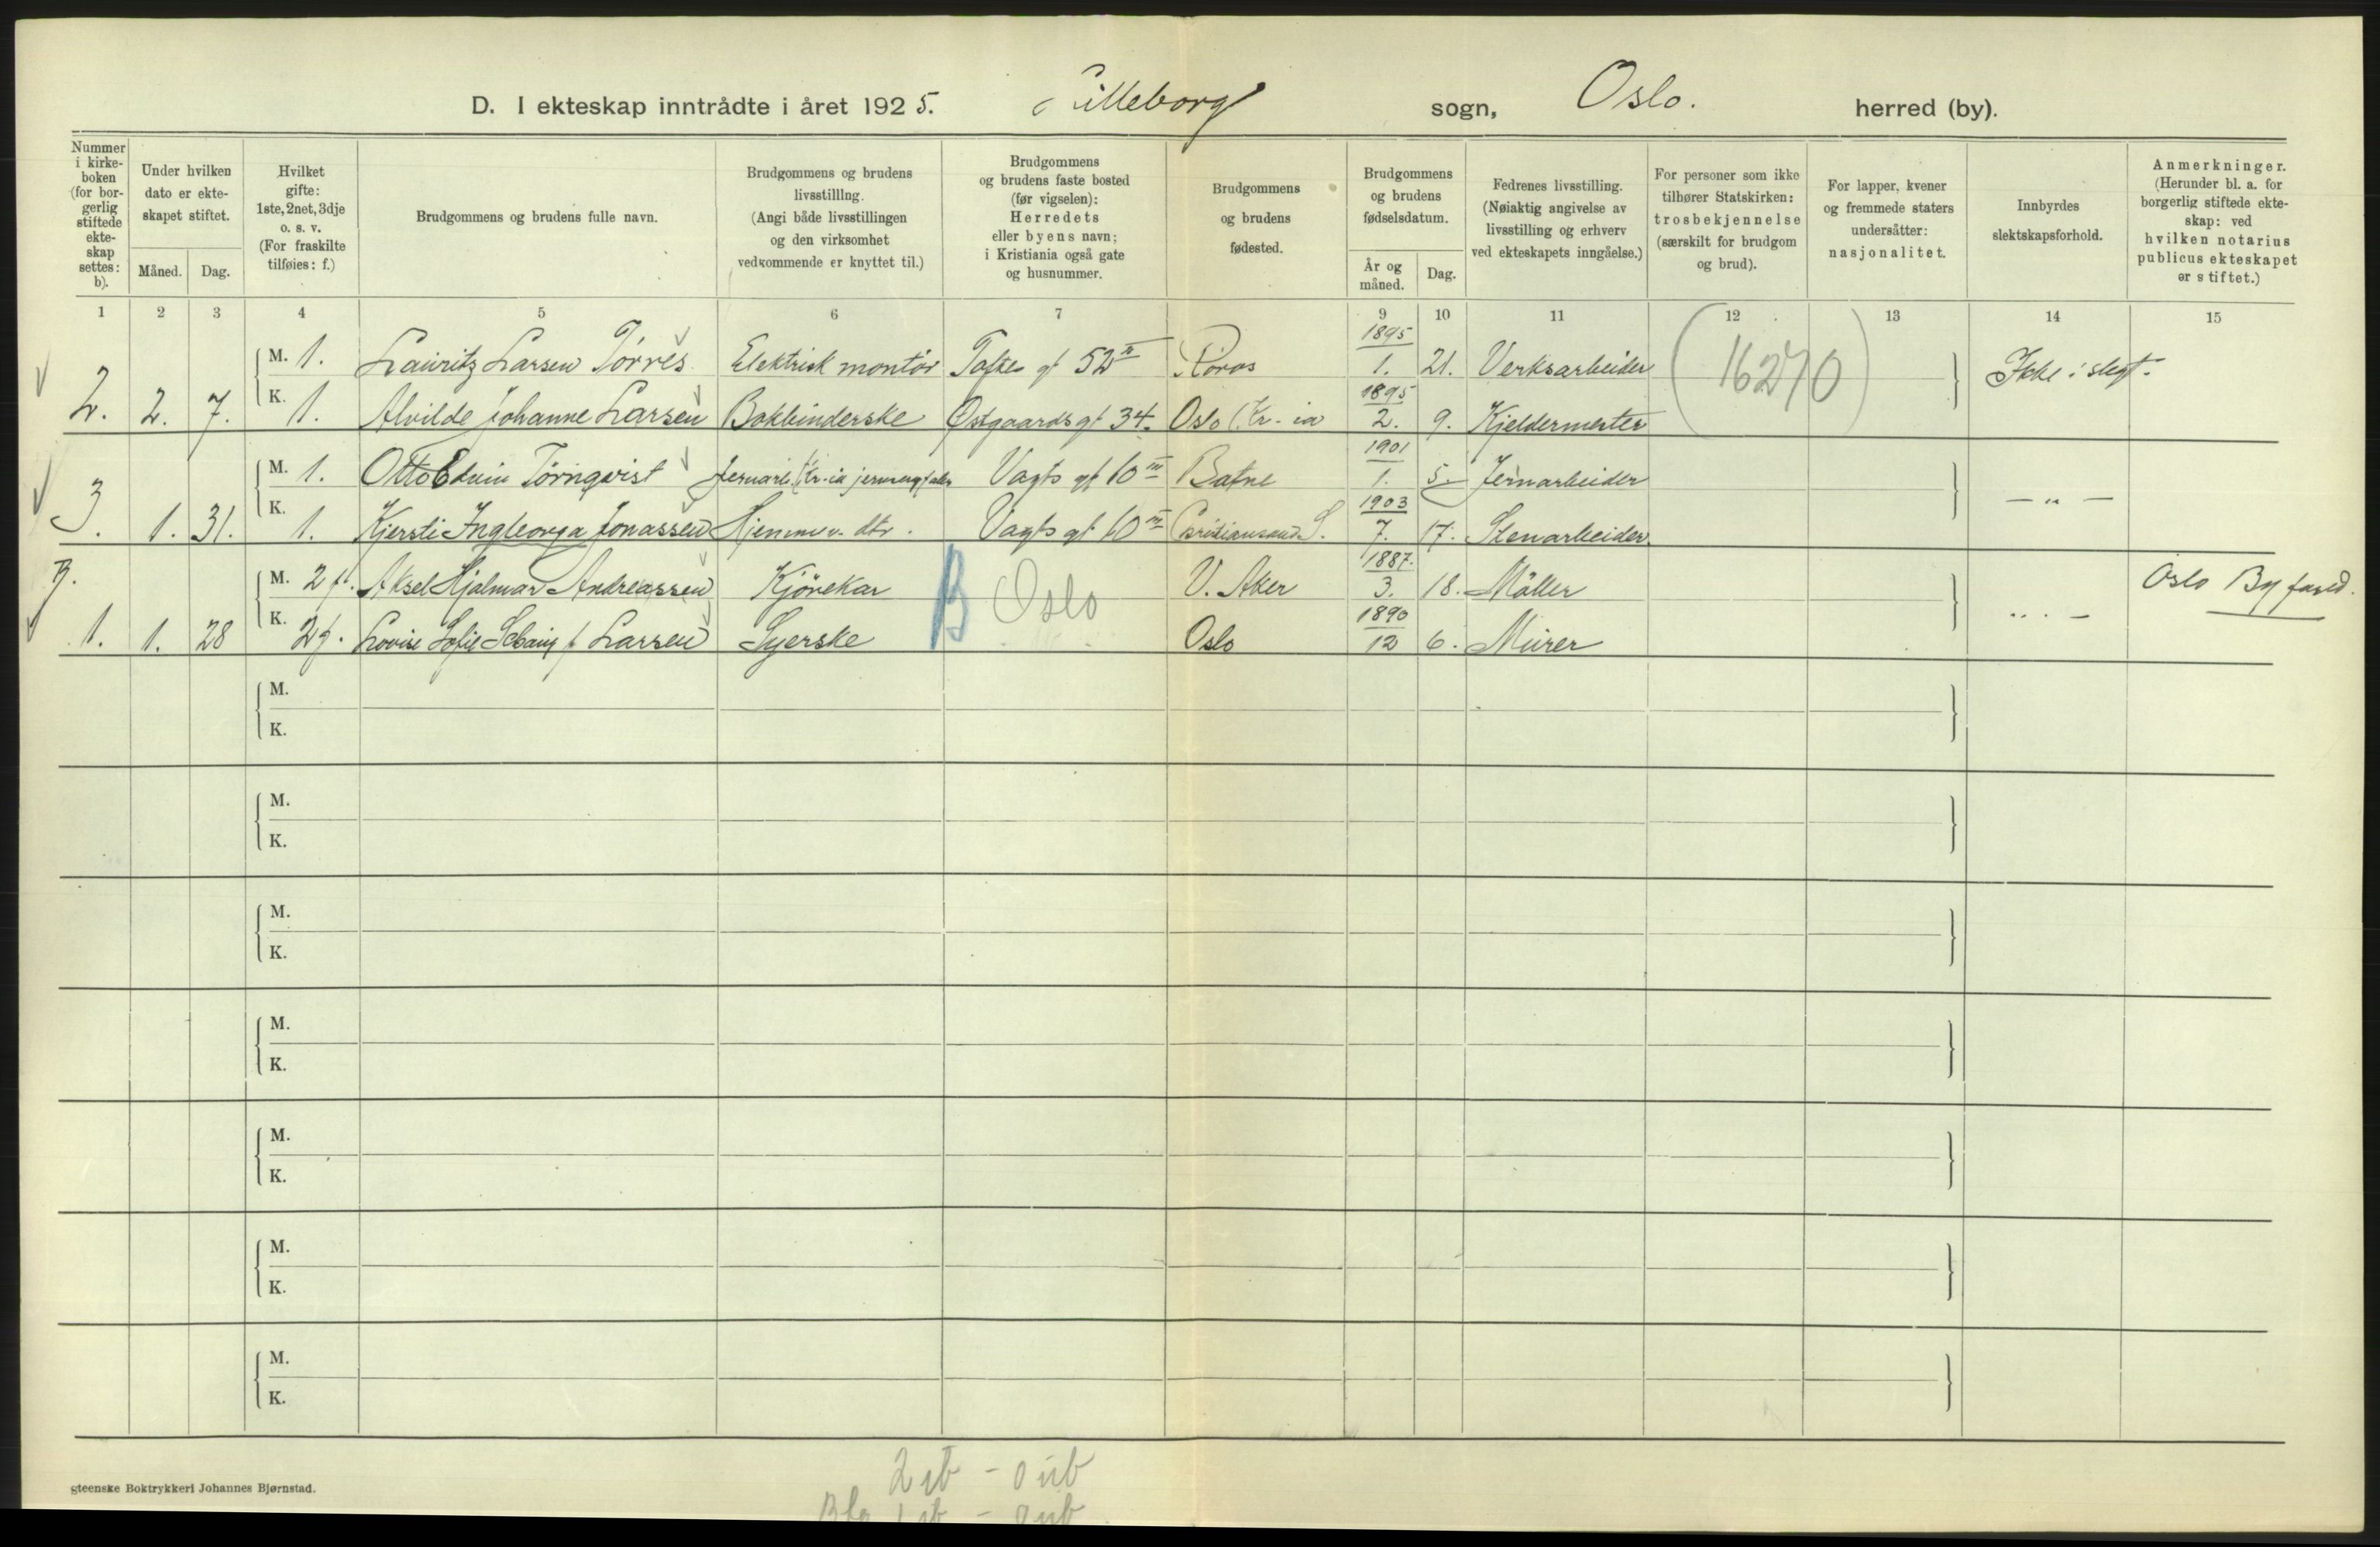 D. I ekteskap inntrådte i året 1925. Lilleborg sogn, Oslo. herred (by).
Nummer i kirke-boken (for bor-gerlig stiftede ekte-skap settes: b).
Under hvilken dato er ekte-skapet stiftet.
Måned. Dag.
Hvilket gifte: 1ste, 2net, 3dje o. s. v. (For fraskilte tilføies: f.)
Brudgommens og brudens fulle navn.
Brudgommens og brudens livsstilllng. (Angi både livsstillingen og den virksomhet vedkommende er knyttet til.)
Brudgommens og brudens faste bosted (før vigselen): Herredets eller byens navn; i Kristiania også gate og husnummer.
Brudgommens og brudens fødested.
Brudgommens og brudens fødselsdatum.
År og måned. Dag.
Fedrenes livsstilling. (Nøiaktig angivelse av livsstilling og erhverv ved ekteskapets inngåelse.)
For personer som ikke tilhører Statskirken: trosbekjennelse (særskilt for brudgom og brud).
For lapper, kvener og fremmede staters undersåtter: nasjonalitet.
Innbyrdes slektskapsforhold.
Anmerkninger. (Herunder bl. a. for borgerlig stiftede ekte-skap: ved hvilken notarius publicus ekteskapet er stiftet.)
1 2 3 4 5 6 7 8 9 10 11 12 13 14 15
M. 1. Lauritz Larsen Törres Elektrisk montör Toftes gt 52 II Röros 1895 1. 21. Verksarbeider (16270) Ikke i slegt.
2. 2. 7. K. 1. Alvilde Johanne Larsen Bokbinderske Østgaards gt 34. Oslo (Kr-ia 1895 2. 9. Kjeldermester
M. 1. Otto Edvin Törnqvist Vagts gt 10 III Batne 1901 1. 5. Jernarbeider
3. 1. 31. K. 1. Kjersti Ingleorga Jonassen Hjemmev. dtr. Vagts gt 10 III Cristiansand S. 1903 7. 17. Stenarbeider. — „ —
B. M. 2 f. Aksel Hjalmar Andreassen Kjörekar B Oslo V. Aker 1887. 3. 18. Möller Oslo Byfoged.
1. 1. 28 K. 2 f. Lovise Sofie f Larsen Syerske Oslo 1890 12 6. Murer
M.
K.
M.
K.
M.
K.
M.
K.
M.
K.
M.
K.
M.
K.
2 ib - 0 ub
Blg 1 ib - 0 ub.
steenske Boktrykkeri Johannes Bjørnstad.